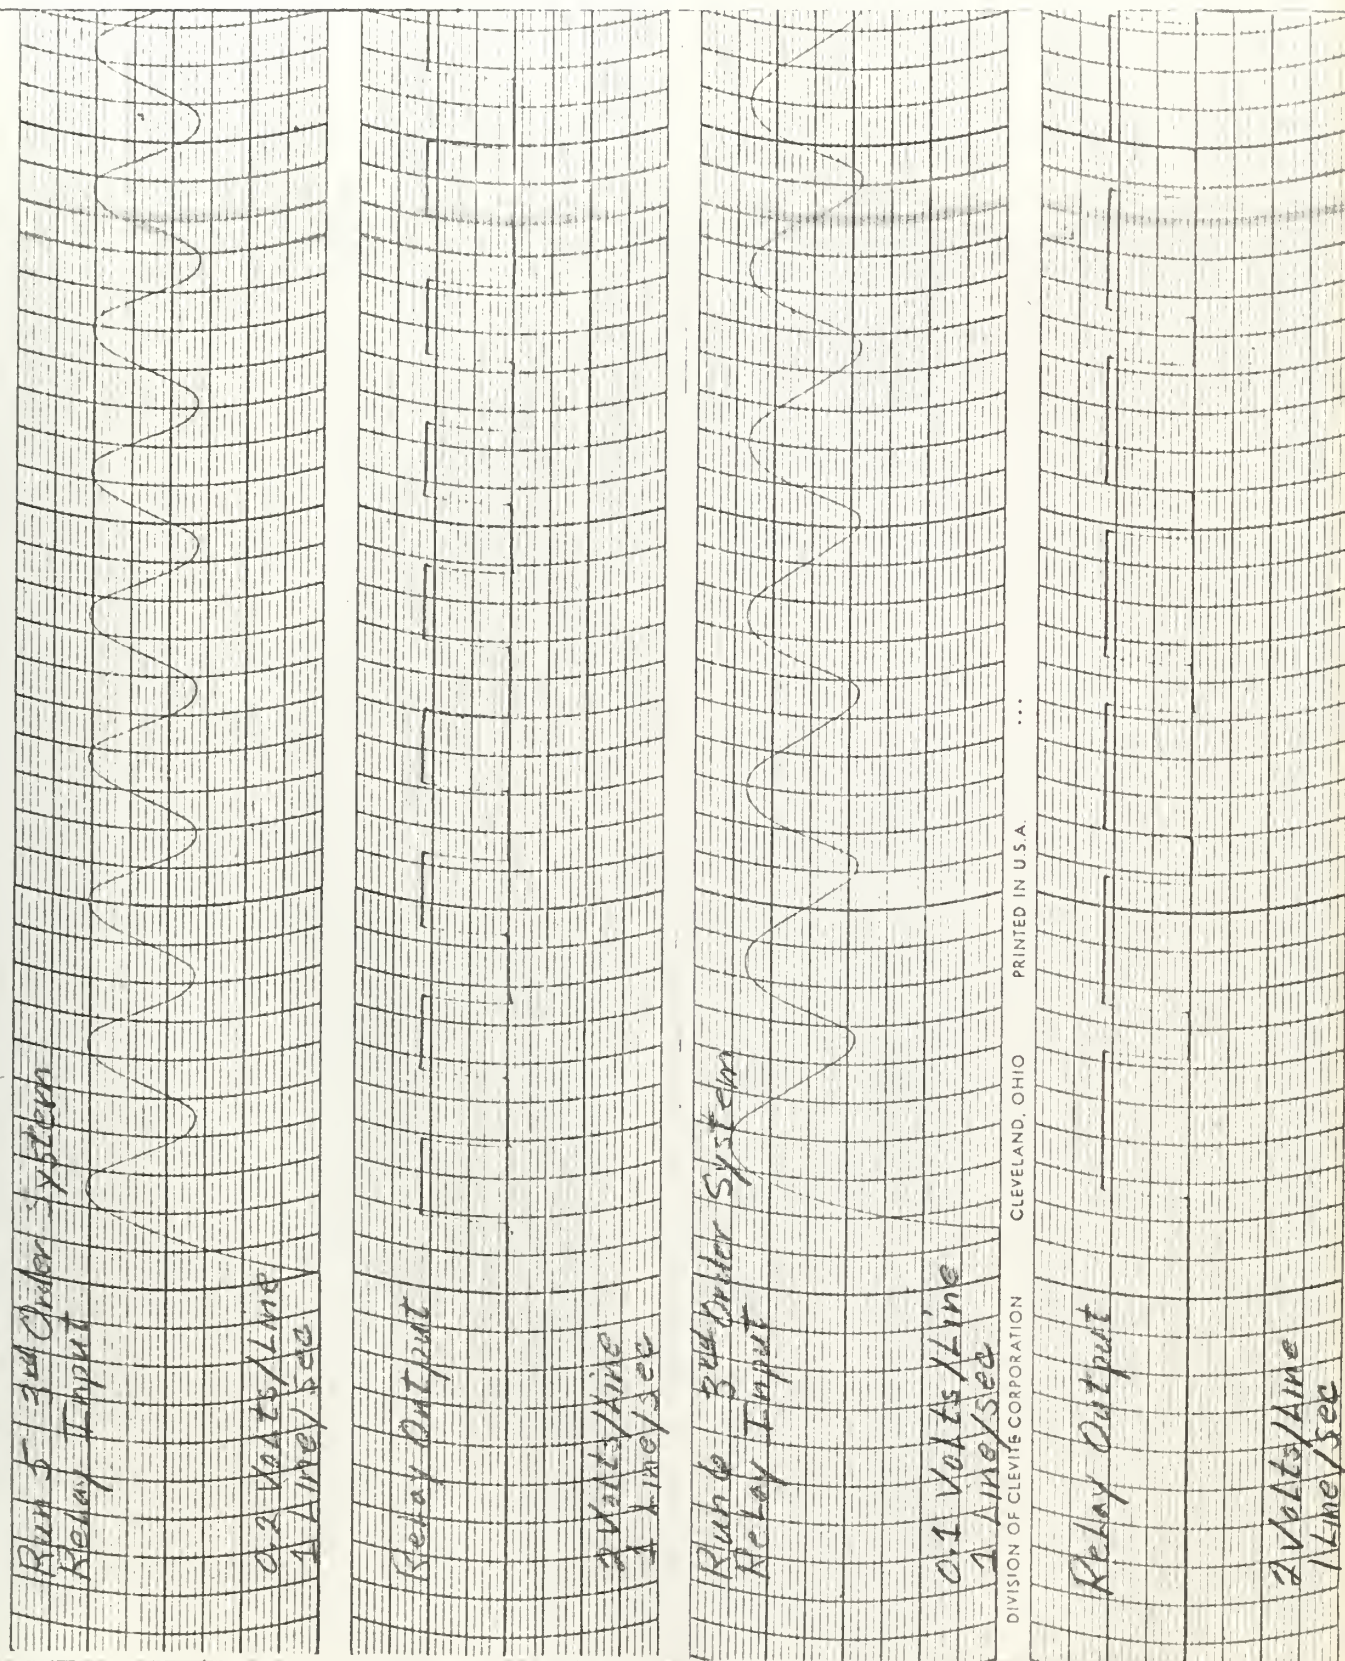 Run 5 3rd Order System
Relay Input
0.2 Volts/Line
1 Line/Sec
Relay Output
2 Volts/Line
1 Line/Sec
Run 6 3rd Order System
Relay Input
0.1 Volts/Line
1 Line/Sec
DIVISION OF CLEVITE CORPORATION CLEVELAND, OHIO PRINTED IN U.S.A.
Relay Output
2 Volts/Line
1 Line/Sec